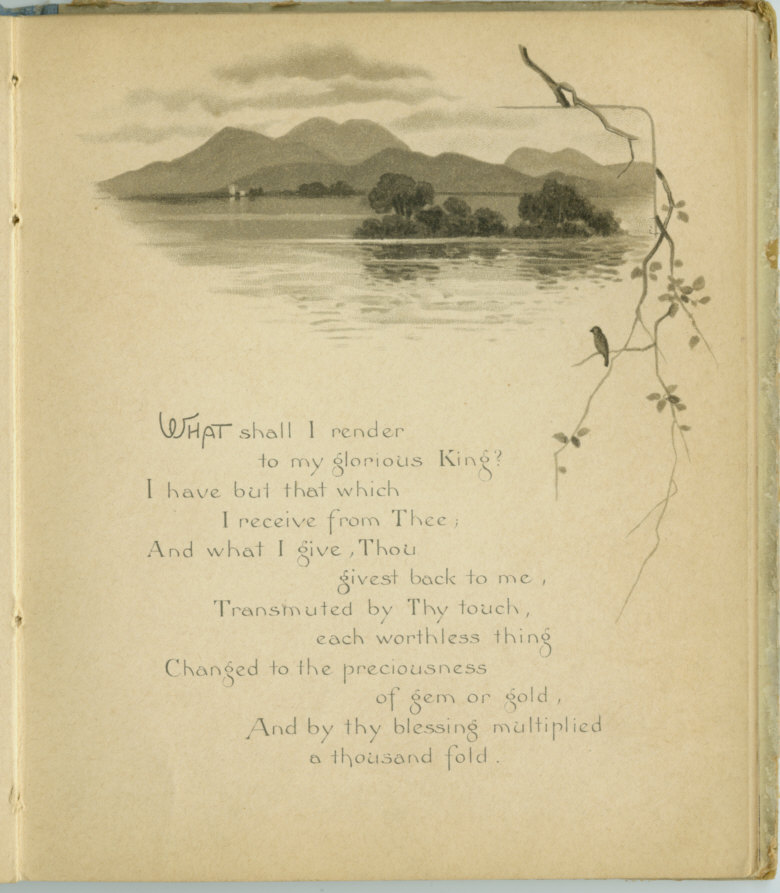 WHAT shall I render
to my glorious King?
I have but that which
I receive from Thee;
And what I give, Thou
givest back to me,
Transmuted by Thy touch,
each worthless thing
Changed to the preciousness
of gem or gold,
And by thy blessing multiplied
a thousand fold.